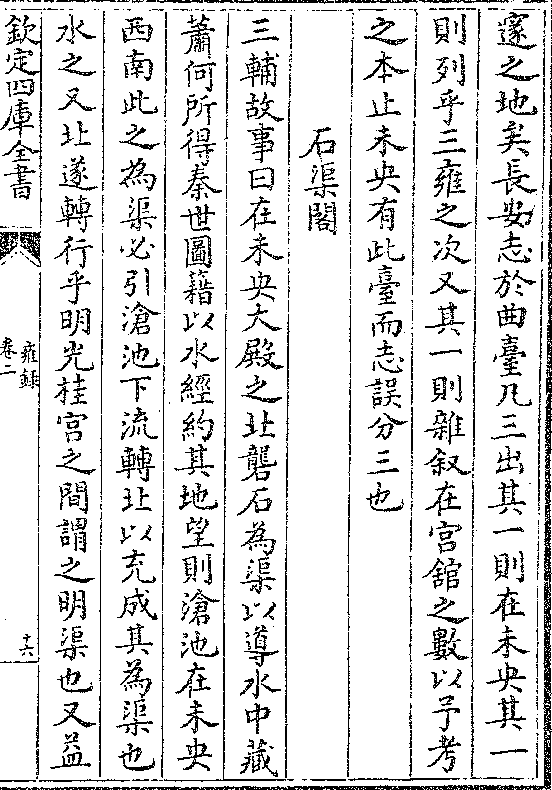 邃之地矣長安志於曲臺凡三出其一則在未央其一
則列乎三雍之次又其一則雜叙在宫舘之數以予考
之本止未央有此臺而志誤分三也
石渠閣
三輔故事曰在未央大殿之北礱石為渠以導水中藏
蕭何所得秦世圖籍以水經約其地望則滄池在未央
西南此之為渠必引滄池下流轉北以充成其為渠也
水之又北遂轉行乎明光桂宫之間謂之明渠也又益
欽定四庫全書
雍錄
卷二
十六